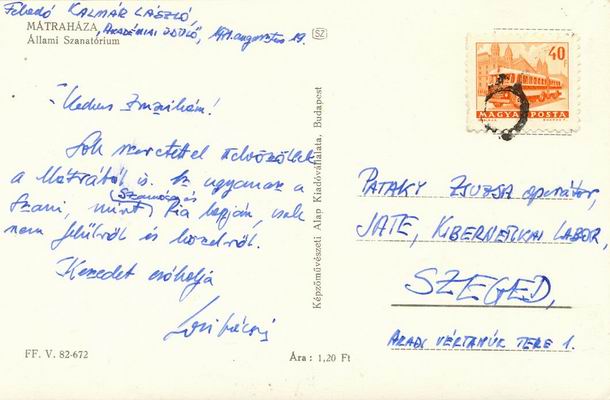 Feladó KALMÁR LÁSZLÓ,
MÁTRAHÁZA, AKADÉMIAI ÜDÜLŐ, 1971. augusztus 19.
Állami Szanatórium
SZ
Kedves Zsuzsikám!
Sok szeretettel üdvözöllek
a Mátrából is. Ez ugyanaz a
Szani, mint Pia lapján, csak
nem felülről és közelről.
Kezedet csókolja
Laci bácsi
FF. V. 82-672
Ára: 1,20 Ft
Képzőművészeti Alap Kiadóvállalata, Budapest
40 f
MAGYAR POSTA
PATAKY ZSUZSA operátor,
JATE, KIBERNETIKAI LABOR,
SZEGED,
ARADI VÉRTANÚK TERE 1.